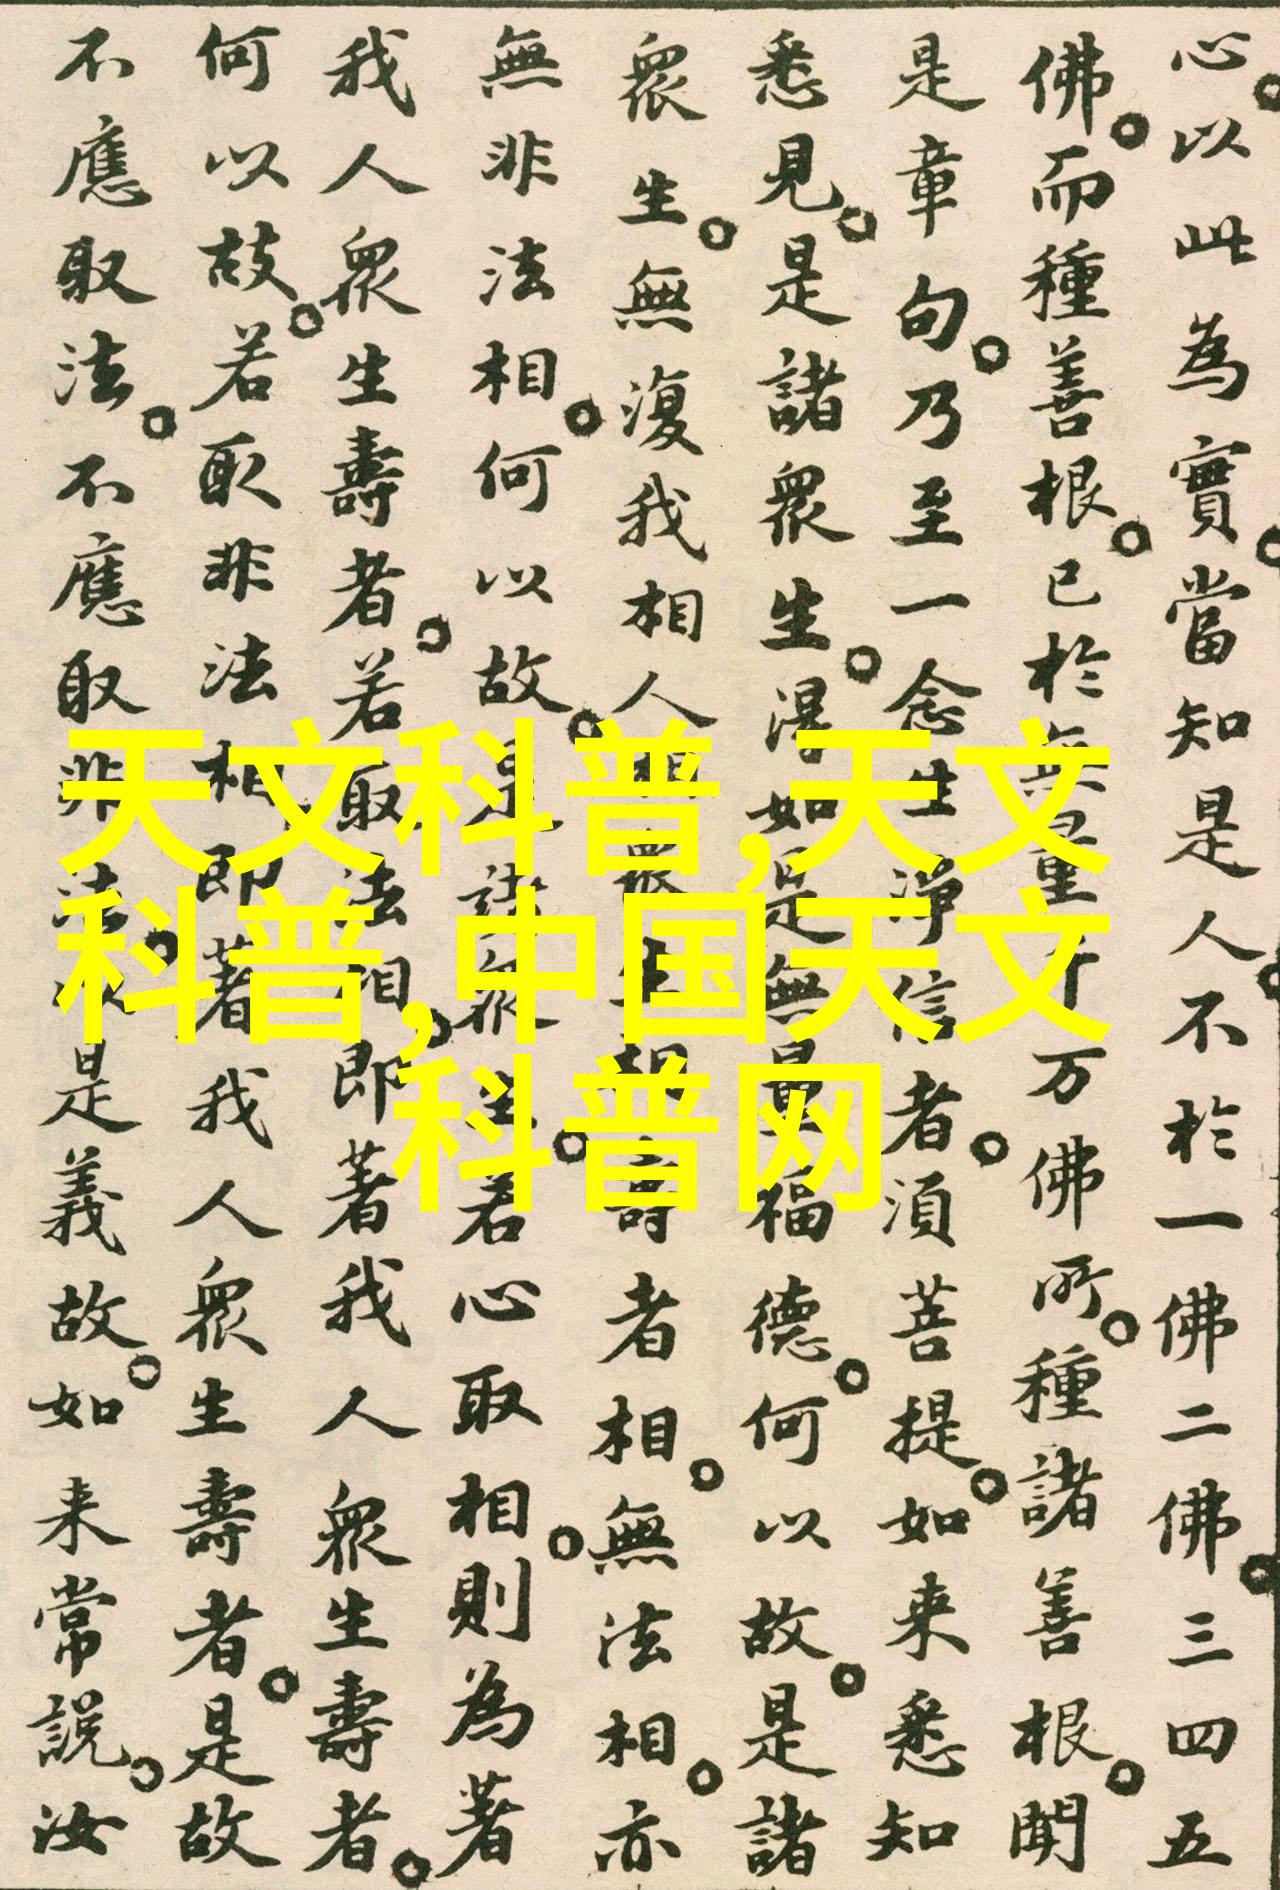 心以此為實當知是人不於一佛二佛三四五
佛而種善根已於無量千万佛所種諸善根聞
是章句乃至一念生淨信者須菩提如来悉知
悉見是諸衆生得如是無量福德何以故是諸
衆生無復我相人相衆生相壽者相無法相亦
無非法相何以故是諸衆生若心取相則為著
我人衆生壽者若取法相即著我人衆生壽者
何以故若取非法相即著我人衆生壽者是故
不應取法不應取非法以是義故如来常說汝
天文科普,天文
科普,中国天文
科普网